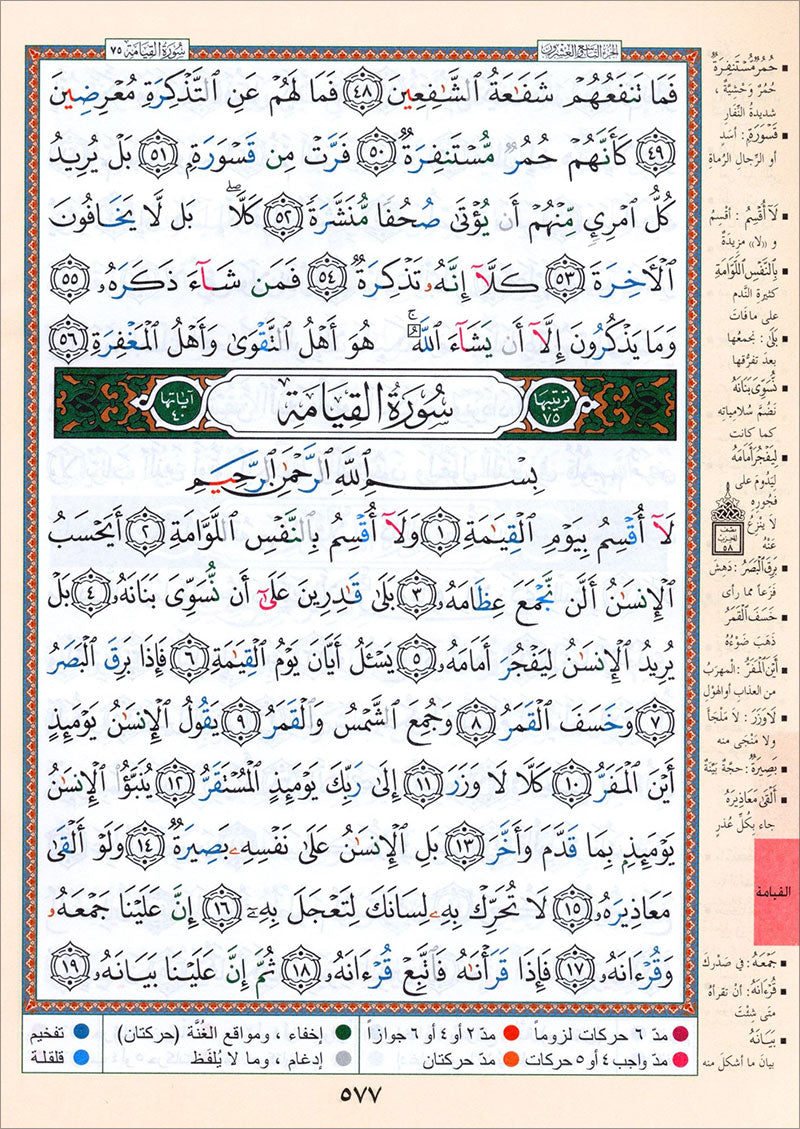 سُورَةُ القِيَامَة ٧٥
الجزء التاسع والعشرون
فَمَا تَنفَعُهُمْ شَفَـٰعَةُ ٱلشَّـٰفِعِينَ ٤٨ فَمَا لَهُمْ عَنِ ٱلتَّذْكِرَةِ مُعْرِضِينَ
٤٩ كَأَنَّهُمْ حُمُرٌ مُّسْتَنفِرَةٌ ٥٠ فَرَّتْ مِن قَسْوَرَةٍۭ ٥١ بَلْ يُرِيدُ
كُلُّ ٱمْرِئٍ مِّنْهُمْ أَن يُؤْتَىٰ صُحُفًا مُّنَشَّرَةً ٥٢ كَلَّا ۖ بَل لَّا يَخَافُونَ
ٱلْأَخِرَةَ ٥٣ كَلَّآ إِنَّهُۥ تَذْكِرَةٌ ٥٤ فَمَن شَآءَ ذَكَرَهُۥ ٥٥
وَمَا يَذْكُرُونَ إِلَّآ أَن يَشَآءَ ٱللَّهُ ۚ هُوَ أَهْلُ ٱلتَّقْوَىٰ وَأَهْلُ ٱلْمَغْفِرَةِ ٥٦
ترتيبها ٧٥ سُورَةُ القِيَامَةِ آياتها ٤٠
بِسْمِ ٱللَّهِ ٱلرَّحْمَـٰنِ ٱلرَّحِيمِ
لَآ أُقْسِمُ بِيَوْمِ ٱلْقِيَـٰمَةِ ١ وَلَآ أُقْسِمُ بِٱلنَّفْسِ ٱللَّوَّامَةِ ٢ أَيَحْسَبُ
ٱلْإِنسَـٰنُ أَلَّن نَّجْمَعَ عِظَامَهُۥ ٣ بَلَىٰ قَـٰدِرِينَ عَلَىٰٓ أَن نُّسَوِّىَ بَنَانَهُۥ ٤ بَلْ
يُرِيدُ ٱلْإِنسَـٰنُ لِيَفْجُرَ أَمَامَهُۥ ٥ يَسْـَٔلُ أَيَّانَ يَوْمُ ٱلْقِيَـٰمَةِ ٦ فَإِذَا بَرِقَ ٱلْبَصَرُ
٧ وَخَسَفَ ٱلْقَمَرُ ٨ وَجُمِعَ ٱلشَّمْسُ وَٱلْقَمَرُ ٩ يَقُولُ ٱلْإِنسَـٰنُ يَوْمَئِذٍ
أَيْنَ ٱلْمَفَرُّ ١٠ كَلَّا لَا وَزَرَ ١١ إِلَىٰ رَبِّكَ يَوْمَئِذٍ ٱلْمُسْتَقَرُّ ١٢ يُنَبَّؤُا۟ ٱلْإِنسَـٰنُ
يَوْمَئِذٍۭ بِمَا قَدَّمَ وَأَخَّرَ ١٣ بَلِ ٱلْإِنسَـٰنُ عَلَىٰ نَفْسِهِۦ بَصِيرَةٌ ١٤ وَلَوْ أَلْقَىٰ
مَعَاذِيرَهُۥ ١٥ لَا تُحَرِّكْ بِهِۦ لِسَانَكَ لِتَعْجَلَ بِهِۦٓ ١٦ إِنَّ عَلَيْنَا جَمْعَهُۥ
وَقُرْءَانَهُۥ ١٧ فَإِذَا قَرَأْنَـٰهُ فَٱتَّبِعْ قُرْءَانَهُۥ ١٨ ثُمَّ إِنَّ عَلَيْنَا بَيَانَهُۥ ١٩
حُمُرٌ مُّسْتَنفِرَةٌ
حُمُرٌ وَحْشِيَّةٌ ،
شديدةُ النِّفَارِ
قَسْوَرَةٍ : أسَدٍ
أو الرِّجالِ الرُّماةِ
لَآ أُقْسِمُ : أُقْسِمُ
و «لا» مزيدةٌ
بِالنَّفْسِ اللَّوَّامَةِ
كثيرة النَّدم
على ما فاتَ
بَلَىٰ : نجمعُها
بعدَ تفرُّقها
نُسَوِّيَ بَنَانَهُ
نَضُمَّ سُلامِياتِهِ
كما كانت
لِيَفْجُرَ أَمَامَهُ
لِيَدُومَ على
فجورِه
لا يَنْزِعُ
عَنْهُ
نصف الحزب ٥٨
بَرِقَ الْبَصَرُ : دَهِشَ
فزَعاً مما رأى
خَسَفَ الْقَمَرُ
ذهَبَ ضَوْءُهُ
أَيْنَ الْمَفَرُّ : المهربُ
من العذابِ أو الهَوْل
لَا وَزَرَ : لا مَلْجَأَ
ولا مَنْجَى منه
بَصِيرَةٌ : حجَّةٌ بيِّنةٌ
أَلْقَىٰ مَعَاذِيرَهُ
جاء بِكُلِّ عُذرٍ
القيامة
جَمْعَهُ : في صَدْرِكَ
قُرْءَانَهُ : أنْ تقرأهُ
متى شِئتَ
بَيَانَهُ
بيانَ ما أشكلَ منه
مدّ ٦ حركات لزوماً مدّ ٢ أو ٤ أو ٦ جوازاً إخفاء ، ومواقع الغُنَّة (حركتان) تفخيم
مدّ واجب ٤ أو ٥ حركات مدّ حركتان إدغام ، وما لا يُلفَظ قلقلة
٥٧٧